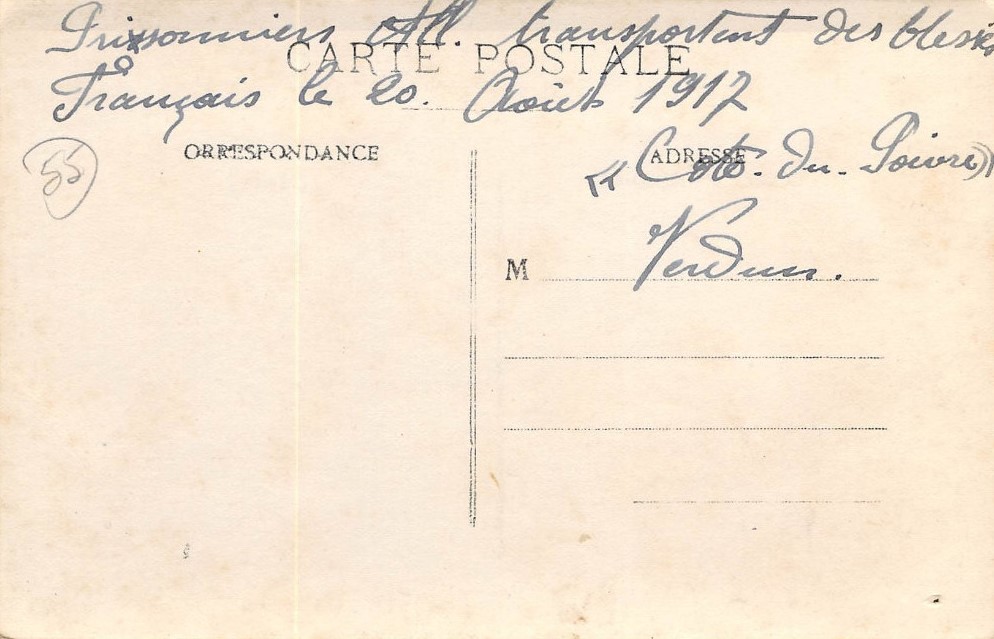 Prisonniers All. transportant des blessés
CARTE POSTALE
Français le 20. Août 1917
ORRESPONDANCE
ADRESSE
« Cote. du. Poivre »
55
M
Verdun.